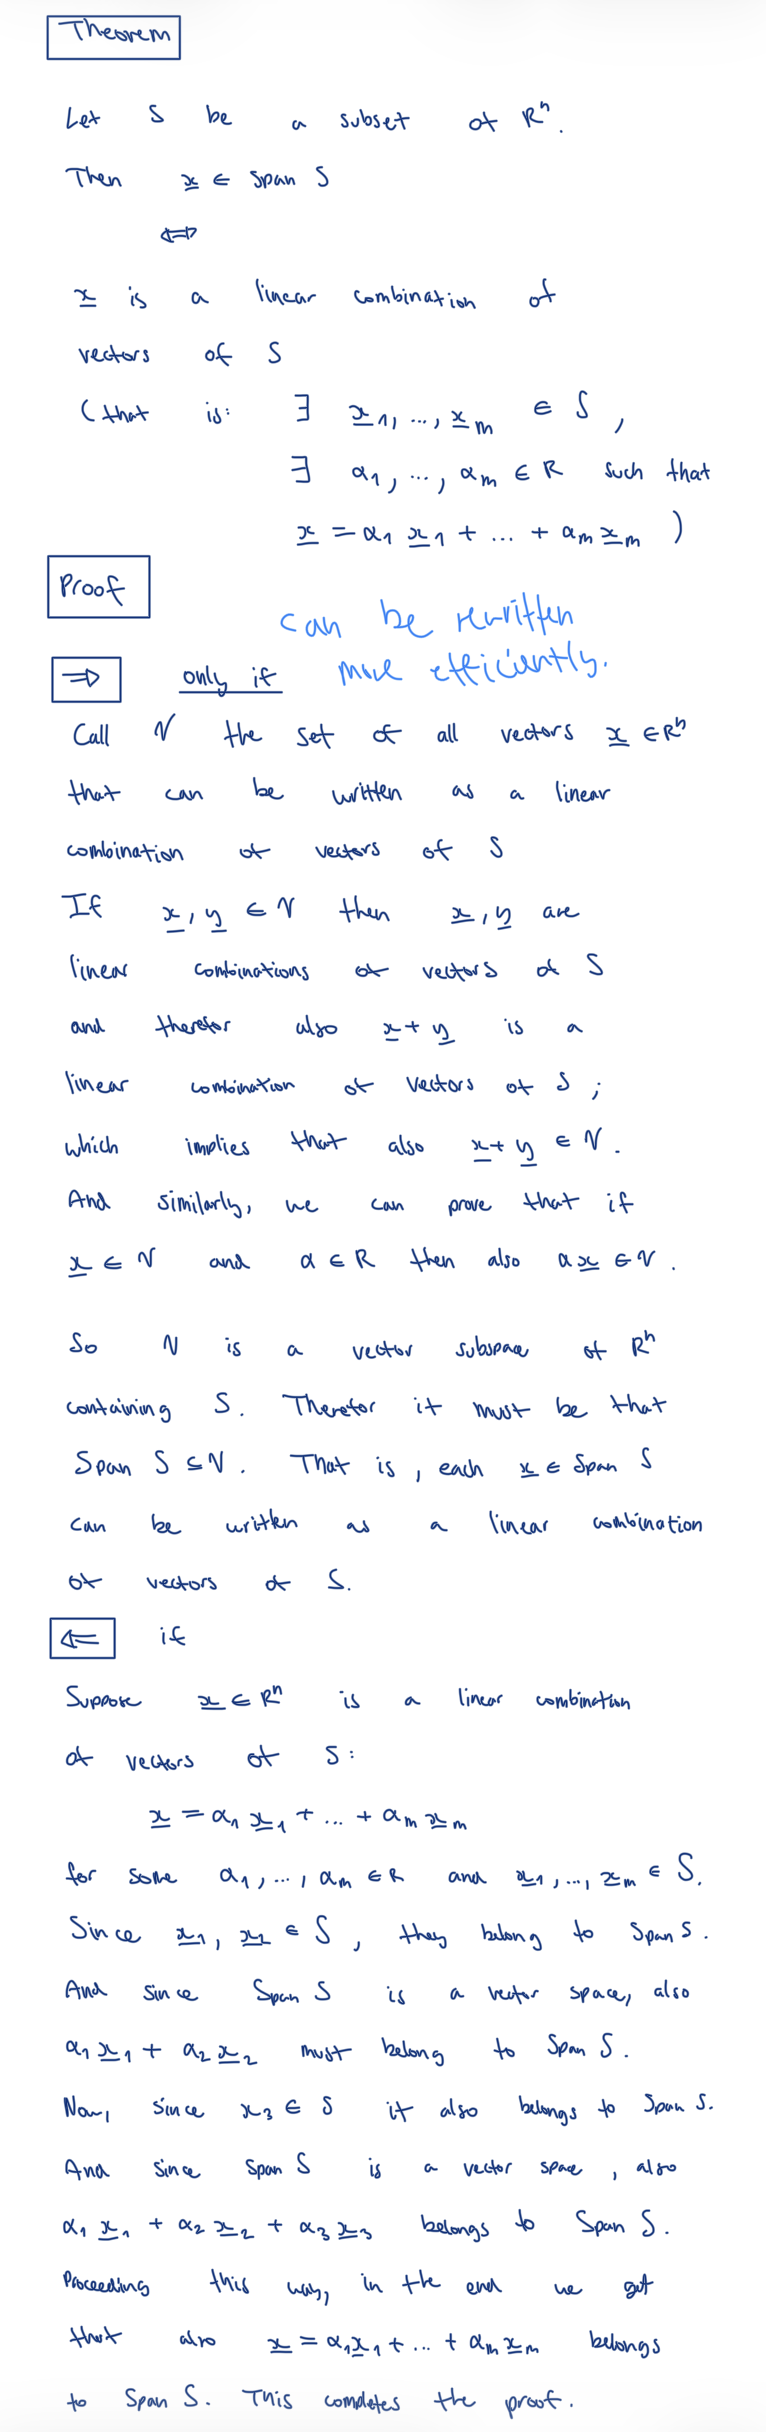 Theorem
Let S be a subset of Rⁿ.
Then x ∈ Span S
⟺
x is a linear combination of
vectors of S
(that is: ∃ x₁, ..., xₘ ∈ S,
∃ α₁, ..., αₘ ∈ R such that
x = α₁ x₁ + ... + αₘ xₘ )
Proof
can be rewritten
more efficiently.
⇒ only if
Call V the set of all vectors x ∈ Rⁿ
that can be written as a linear
combination of vectors of S
If x, y ∈ V then x, y are
linear combinations of vectors of S
and therefor also x + y is a
linear combination of vectors of S;
which implies that also x + y ∈ V.
And similarly, we can prove that if
x ∈ V and α ∈ R then also αx ∈ V.
So V is a vector subspace of Rⁿ
containing S. Therefor it must be that
Span S ⊆ V. That is, each x ∈ Span S
can be written as a linear combination
of vectors of S.
⇐ if
Suppose x ∈ Rⁿ is a linear combination
of vectors of S:
x = α₁ x₁ + ... + αₘ xₘ
for some α₁, ..., αₘ ∈ R and x₁, ..., xₘ ∈ S.
Since x₁, x₂ ∈ S, they belong to Span S.
And since Span S is a vector space, also
α₁ x₁ + α₂ x₂ must belong to Span S.
Now, since x₃ ∈ S it also belongs to Span S.
And since Span S is a vector space, also
α₁ x₁ + α₂ x₂ + α₃ x₃ belongs to Span S.
Proceeding this way, in the end we get
that also x = α₁x₁ + ... + αₘ xₘ belongs
to Span S. This completes the proof.